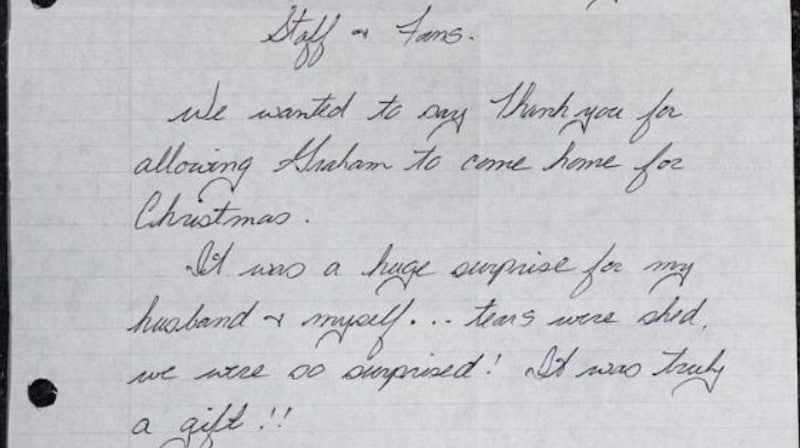 Staff & Fans.
We wanted to say Thank you for
allowing Graham to come home for
Christmas.
It was a huge surprise for my
husband & myself... tears were shed,
we were so surprised! It was truly
a gift!!